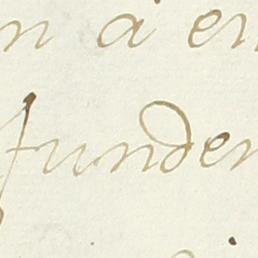 n à en
funden